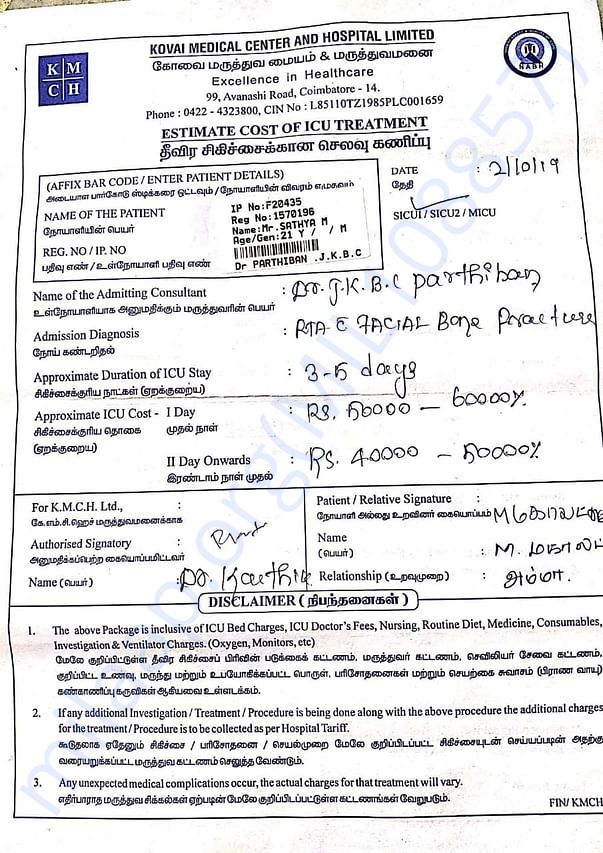 KOVAI MEDICAL CENTER AND HOSPITAL LIMITED
கோவை மருத்துவ மையம் & மருத்துவமனை
Excellence in Healthcare
99, Avanashi Road, Coimbatore - 14.
Phone : 0422 - 4323800, CIN No : L85110TZ1985PLC001659
K M
C H
NABH
ESTIMATE COST OF ICU TREATMENT
தீவிர சிகிச்சைக்கான செலவு கணிப்பு
(AFFIX BAR CODE / ENTER PATIENT DETAILS)
அடையாள பார்கோடு ஸ்டிக்கரை ஒட்டவும் / நோயாளியின் விவரம்
NAME OF THE PATIENT
நோயாளியின் பெயர்
REG. NO / IP. NO
பதிவு எண் / உள்நோயாளி பதிவு எண்
IP No:F20435
Reg No:1570196
Name:Mr.SATHYA M
Age/Gen:21 Y / / M
Dr PARTHIBAN .J.K.B.C
DATE : 2/10/19
தேதி
SICU1 / SICU2 / MICU
Name of the Admitting Consultant : Dr. J.K.B.C parthiban
உள்நோயாளியாக அனுமதிக்கும் மருத்துவரின் பெயர்
Admission Diagnosis : RTA C FACIAL Bone Fracture
நோய் கண்டறிதல்
Approximate Duration of ICU Stay : 3-5 days
சிகிச்சைக்குரிய நாட்கள் (ஏறக்குறைய)
Approximate ICU Cost - I Day : Rs. 50000 - 60000/-
சிகிச்சைக்குரிய தொகை முதல் நாள்
(ஏறக்குறைய)
II Day Onwards : Rs. 40000 - 50000/-
இரண்டாம் நாள் முதல்
For K.M.C.H. Ltd., :
கே.எம்.சி.ஹெச் மருத்துவமனைக்காக
Authorised Signatory :
அனுமதிக்கப்பெற்ற கையொப்பமிட்டவர்
Name (பெயர்) : Dr. Karthik
Patient / Relative Signature :
நோயாளி அல்லது உறவினர் கையொப்பம்
Name
(பெயர்) : M.
Relationship (உறவுமுறை) : அம்மா.
DISCLAIMER ( நிபந்தனைகள் )
1. The above Package is inclusive of ICU Bed Charges, ICU Doctor's Fees, Nursing, Routine Diet, Medicine, Consumables,
Investigation & Ventilator Charges. (Oxygen, Monitors, etc)
மேலே குறிப்பிட்டுள்ள தீவிர சிகிச்சைப் பிரிவின் படுக்கைக் கட்டணம், மருத்துவர் கட்டணம், செவிலியர் சேவை கட்டணம்,
குறிப்பிட்ட உணவு, மருந்து மற்றும் உபயோகிக்கப்பட்ட பொருள், பரிசோதனைகள் மற்றும் செயற்கை சுவாசம் (பிராண வாயு)
கண்காணிப்பு கருவிகள் ஆகியவை உள்ளடக்கம்.
2. If any additional Investigation / Treatment / Procedure is being done along with the above procedure the additional charges
for the treatment / Procedure is to be collected as per Hospital Tariff.
கூடுதலாக ஏதேனும் சிகிச்சை / பரிசோதனை / செயல்முறை மேலே குறிப்பிடப்பட்ட சிகிச்சையுடன் செய்யப்படின் அதற்கு
வரையறுக்கப்பட்ட மருத்துவ கட்டணம் செலுத்த வேண்டும்.
3. Any unexpected medical complications occur, the actual charges for that treatment will vary.
எதிர்பாராத மருத்துவ சிக்கல்கள் ஏற்படின் மேலே குறிப்பிடப்பட்டுள்ள கட்டணங்கள் வேறுபடும்.
FIN/ KMCH